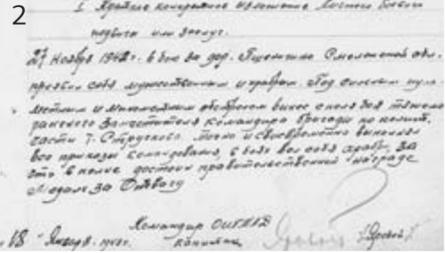 2
I. Краткое конкретное изложение личного боевого
подвига или заслуг.
27 ноября 1942 г. в бою за дер. Смоленской обл.
проявил себя мужественным и храбрым. Под сильным пуле
метным и минометным обстрелом вынес с поля боя тяжело
раненого заместителя командира бригады по полит.
части т. точно и своевременно выполнял
все приказы командования, в боях вел себя храбро, за
что вполне достоин правительственной награде
Медаль За Отвагу
Командир
капитан
18 " Января